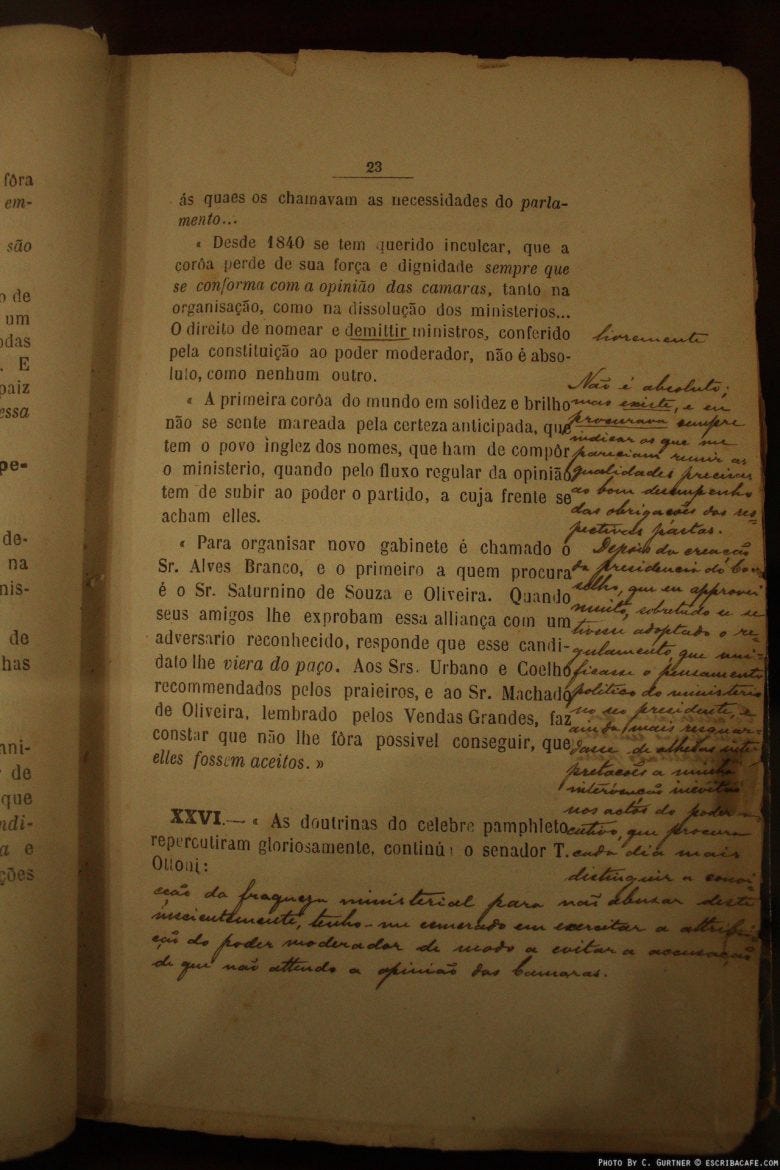 fôra
em-
são
o de
um
odas
. E
paiz
essa
pe-
de-
na
nis-
de
has
ani-
de
que
ndi-
a e
ções
23
ás quaes os chamavam as necessidades do parla-
mento...
« Desde 1840 se tem querido inculcar, que a
corôa perde de sua força e dignidade sempre que
se conforma com a opinião das camaras, tanto na
organisação, como na dissolução dos ministerios...
O direito de nomear e demittir ministros, conferido
pela constituição ao poder moderador, não é abso-
luto, como nenhum outro.
« A primeira corôa do mundo em solidez e brilho
não se sente mareada pela certeza anticipada, que
tem o povo inglez dos nomes, que ham de compôr
o ministerio, quando pelo fluxo regular da opinião
tem de subir ao poder o partido, a cuja frente se
acham elles.
« Para organisar novo gabinete é chamado o
Sr. Alves Branco, e o primeiro a quem procura
é o Sr. Saturnino de Souza e Oliveira. Quando
seus amigos lhe exprobam essa alliança com um
adversario reconhecido, responde que esse candi-
dato lhe viera do paço. Aos Srs. Urbano e Coelho
recommendados pelos praieiros, e ao Sr. Machado
de Oliveira, lembrado pelos Vendas Grandes, faz
constar que não lhe fôra possivel conseguir, que
elles fossem aceitos. »
XXVI.— « As doutrinas do celebre pamphleto
repercutiram gloriosamente, continúa o senador T.
Ottoni:
livremente
Não é absoluto;
mas existe, e eu
procurava sempre
indicar os que me
pareciam reunir as
qualidades precisas
ao bom desempenho
das obrigações das res-
pectivas pastas.
Depois da creação
da presidencia do Con-
selho, que eu approvei
muito, sobretudo se se
tivesse adoptado o re-
gulamento, que uni-
ficasse o pensamento
politico do ministerio
no seo presidente, e
ainda mais resguar-
dasse de alheias inter-
pretações a minha
intervenção inevitavel
nos actos do poder e-
xecutivo, que procuro
cada dia mais
distinguir a convi-
cção da fraqueza ministerial para não abusar desta
inscientemente, tenho-me esmerado em exercitar a attribui-
ção do poder moderador de modo a evitar a accusação
de que não attendo a opinião das Camaras.
PHOTO BY C. GURTNER © ESCRIBACAFE.COM